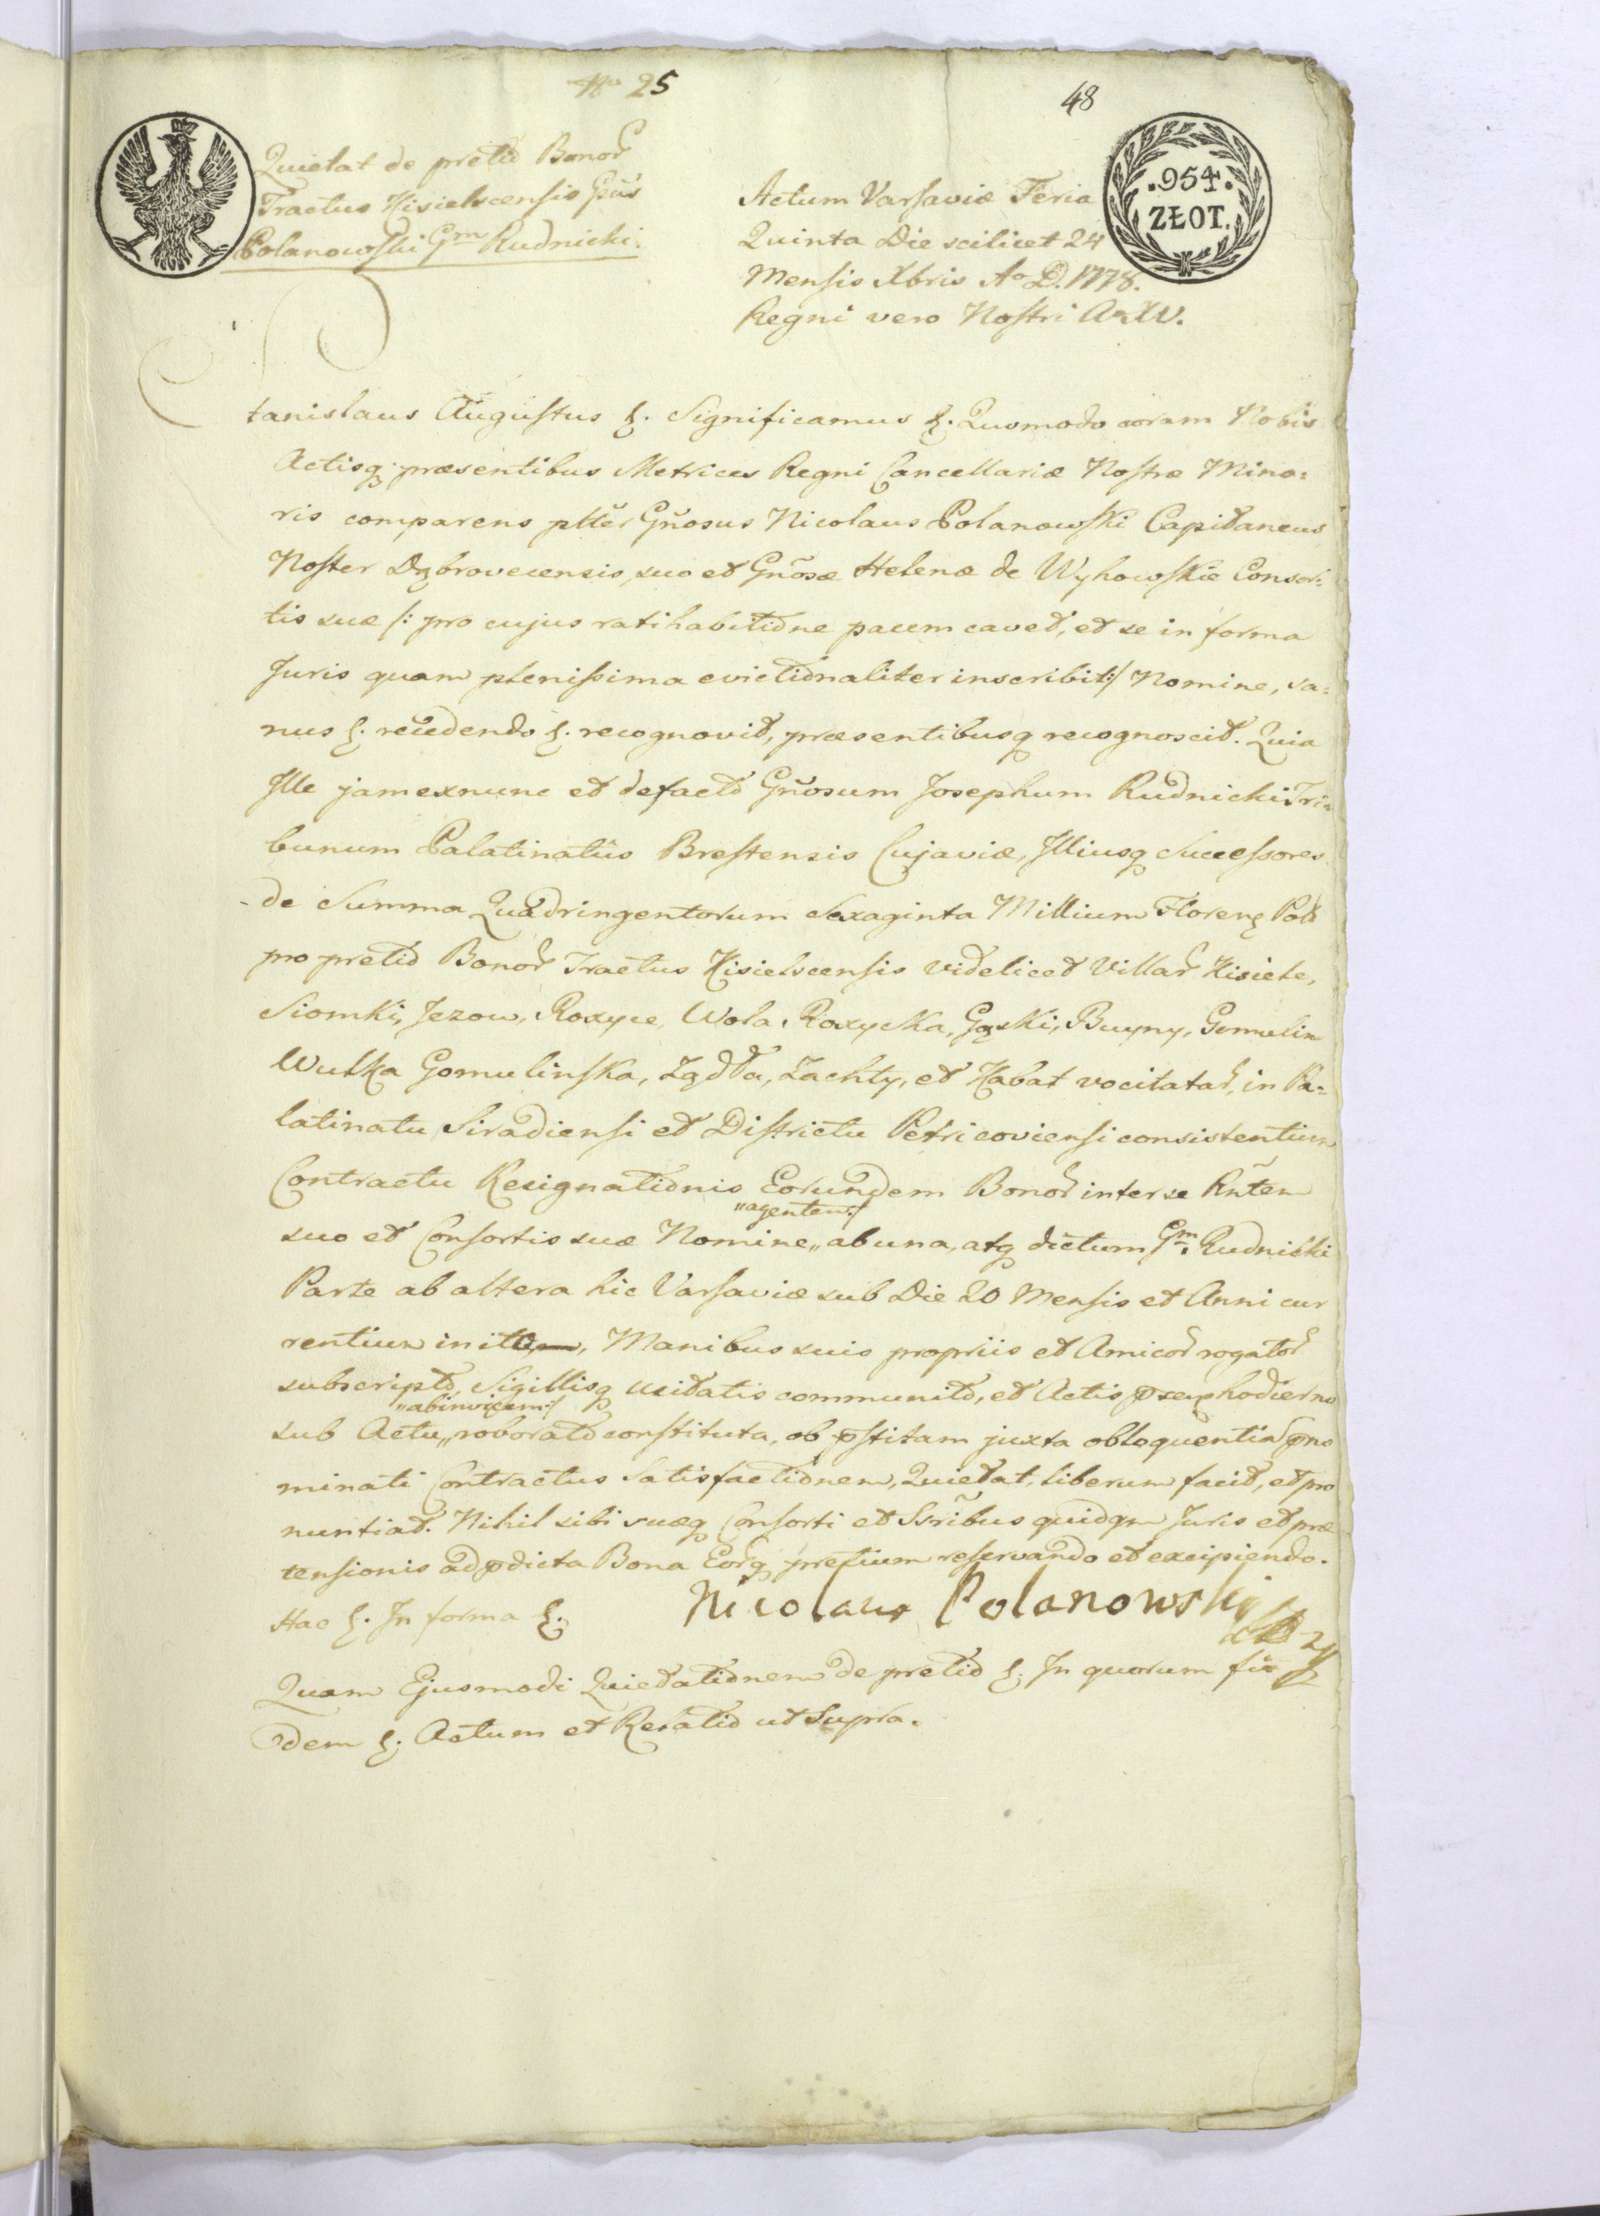 No 25
48
Quietat de pretio Bonor
Tractus Kisielscensis Gsus
Polanowski Gm Rudnicki.
.954.
ZŁOT.
Actum Varsaviæ Feria
Quinta Die scilicet 24
Mensis Xbris Ao D. 1778.
Regni vero Nostri Ao XV.
tanislaus Augustus &. Significamus &. Quomodo coram Nobis
Actisq præsentibus Metrices Regni Cancellariæ Nostræ Mino:
ris comparens plter Gnosus Nicolaus Polanowski Capitaneus
Noster Dąbrovecensis, suo et Gnosæ Helenæ de Wyhowskie Consor:
tis suæ /: pro cujus ratihabitione pacem cavet, et se in forma
Juris quam plenissima evictionaliter inscribit :/ Nomine, sa:
nus &. recedendo &. recognovit, præsentibusq recognoscit. Quia
Ille jam exnunc et defacto Gnosum Josephum Rudnicki Tri:
bunum Palatinatus Brestensis Cujaviæ, Illiusq Successores
de Summa Quadringentorum Sexaginta Millium Floren Pol
pro pretio Bonor Tractus Kisielscensis videlicet Villar Kisiele,
Siomki, Jezow, Rozyce, Wola Rozycka, Gąski, Buyny, Gomulin
Wulka Gomulinska, Żądła, Zachty, et Kabat vocitatar, in Pa:
latinatu Siradiensi et Districtu Petricoviensi consistentium
Contractu Resignationis Eorundem Bonor inter se Rntem
"agentem:/
suo et Consortis suæ Nomine,, ab una, atq dictum Gm. Rudnicki
Parte ab altera hic Varsaviæ sub Die 20 Mensis et Anni cur
rentium inito, Manibus suis propriis et Amicor rogator
subscripto, Sigillisq usitatis communito, et Actis hodierno
"abinvicem:/
sub Actu,, roborato constituta, ob pstitam juxta obloquentia pno
minati Contractus Satisfactionem, Quietat, liberum facit, et pro
nuntiat. Nihil sibi suæq Consorti et Ssribus quidqm Juris et præ
tensionis ad pdicta Bona Eorq pretium reservando et excipiendo.
Hac &. In forma &.
Nicolaus Polanowski
Quam Ejusmodi Quietationem de pretio &. In quorum fi
dem &. Actum et Relatio ut Supra.